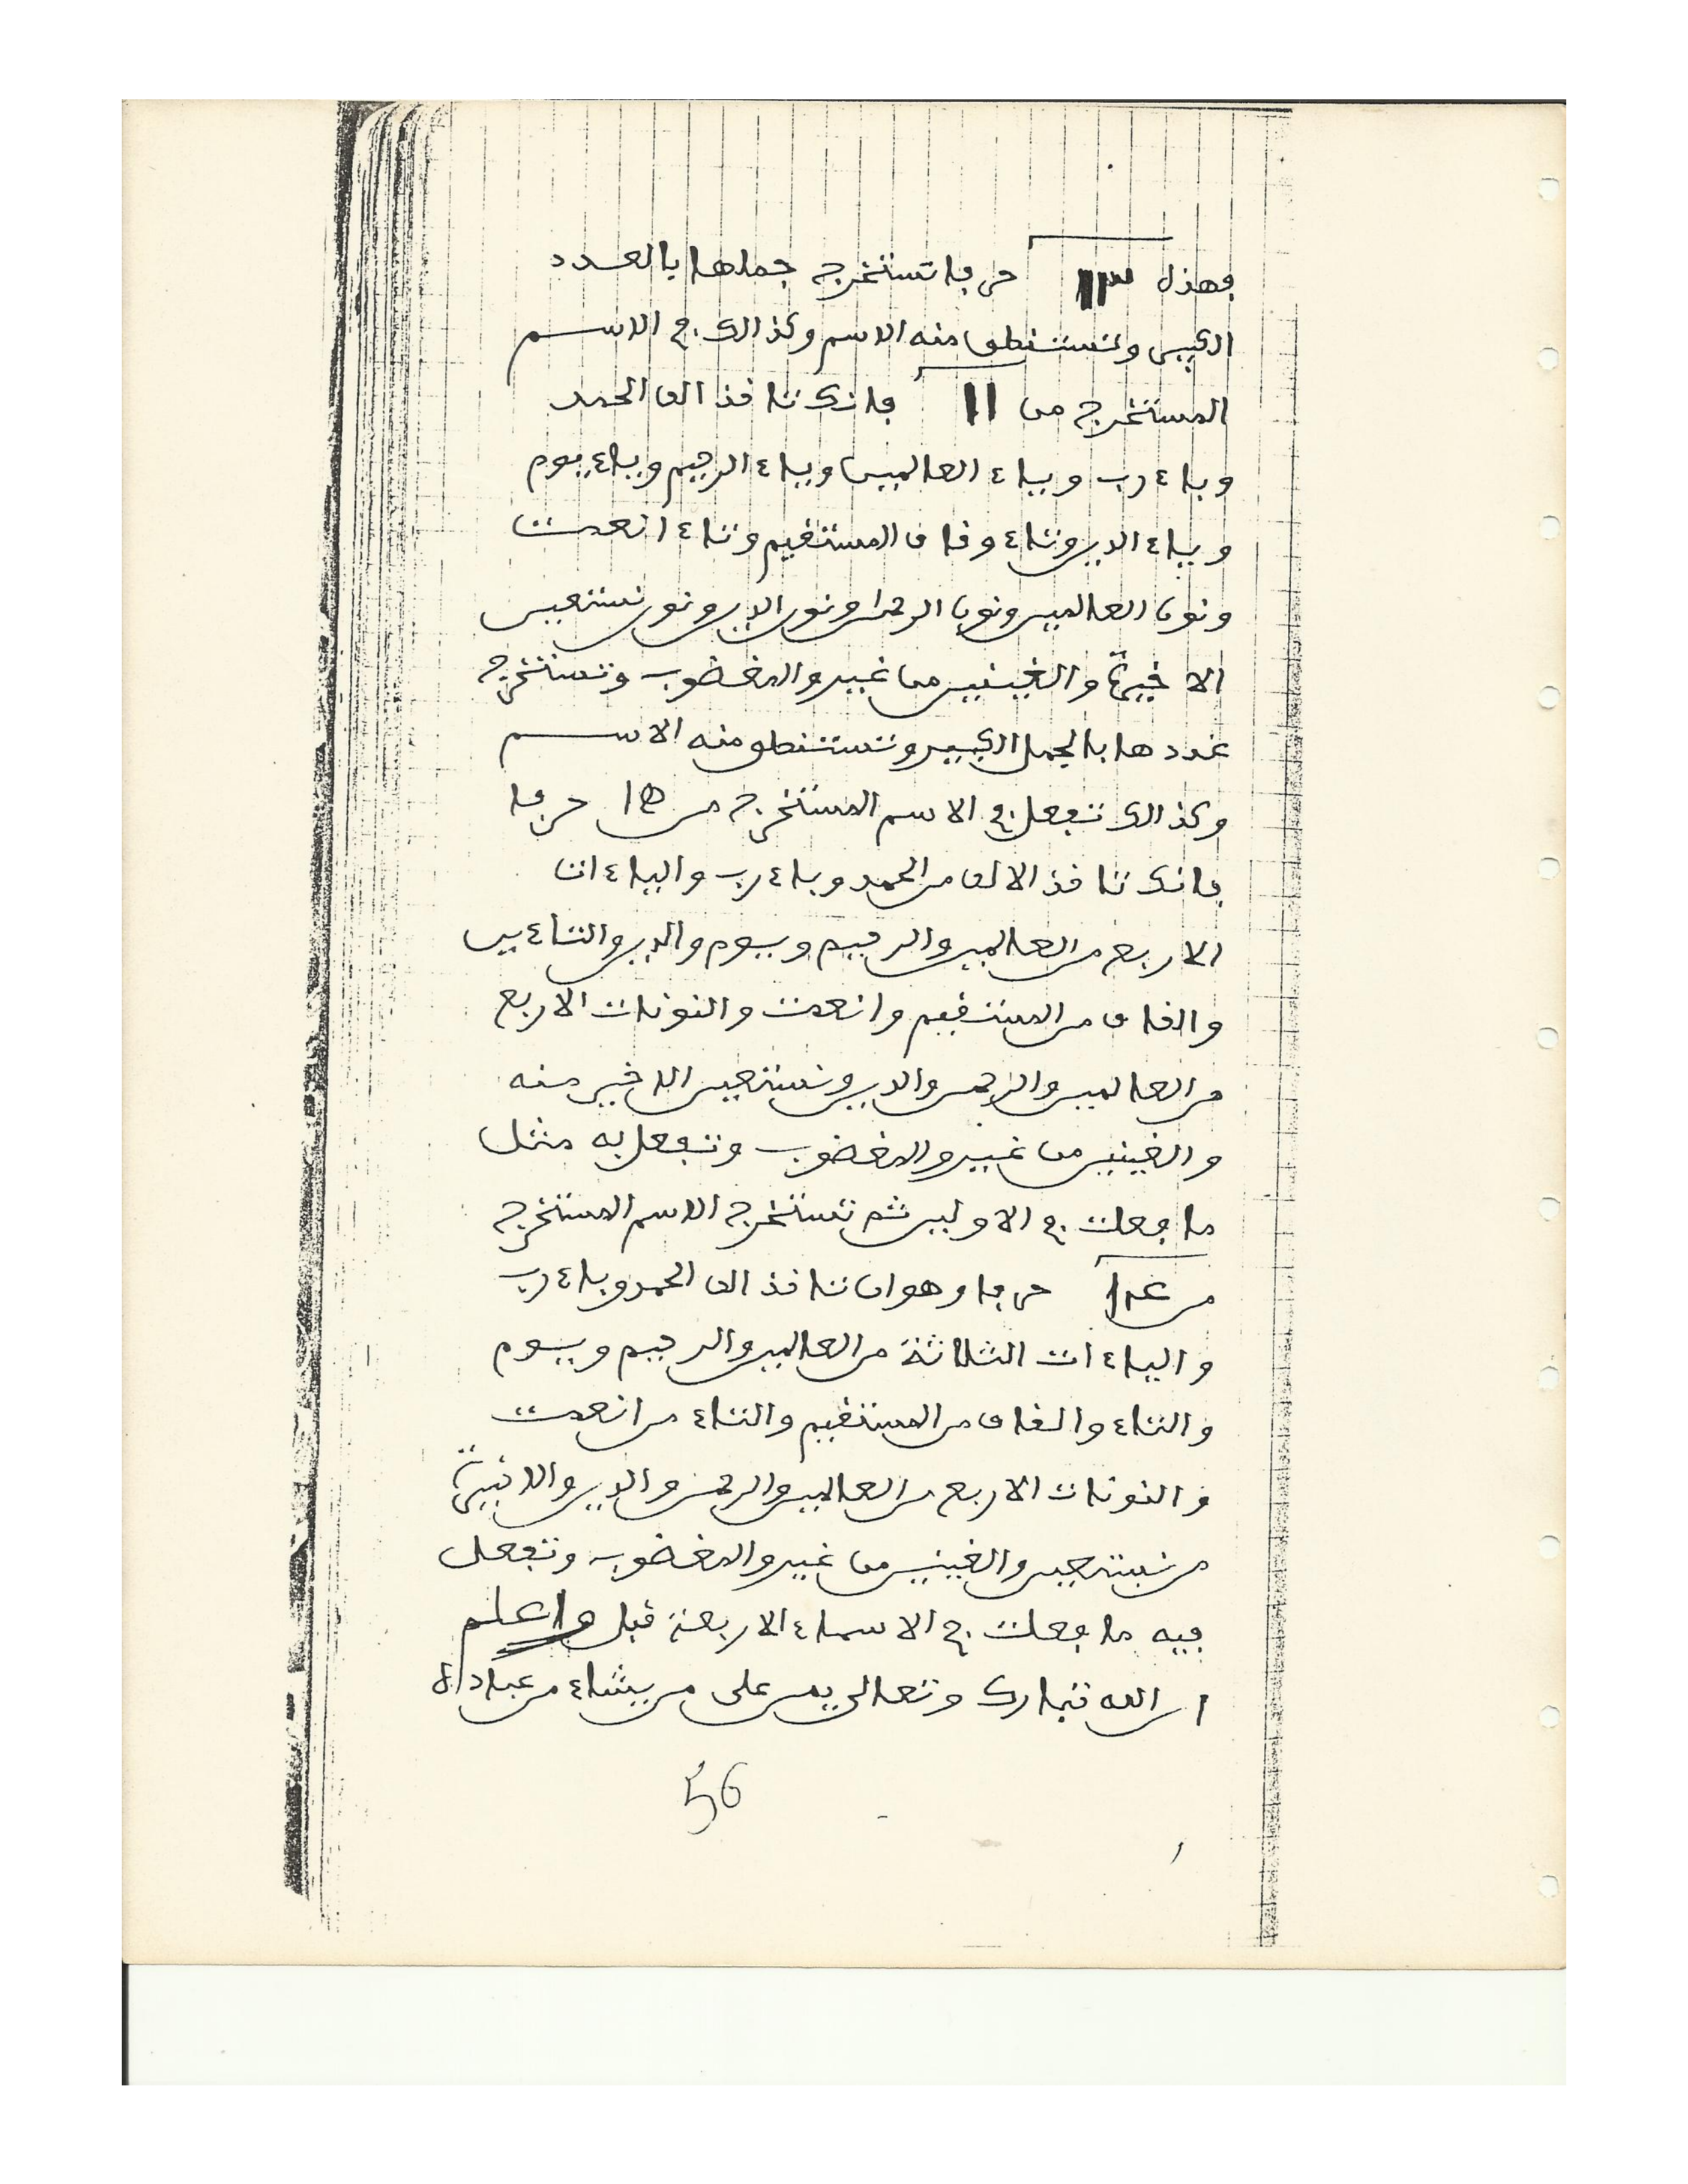 فهذا ١١٣ حرفا تستخرج جملها بالعدد
الكبير وتستنطق منه الاسم وكذالك في الاسم
المستخرج من ١١ فانك تاخذ الف الحمد
وباء رب وياء العالمين وياء الرحيم وياء يوم
وياء الدين وتاء وقاف المستقيم وتاء انعمت
ونون العالمين ونون الرحمن ونون الدين ونون نستعين
الاخيرة والغينين من غير والمغضوب وتستخرج
عددها بالجمل الكبير وتستنطق منه الاسم
وكذالك تفعل في الاسم المستخرج من حرفا
فانك تاخذ الالف من الحمد وباء رب والياءات
الاربع من العالمين والرحيم ويوم والدين والتاءين
والقاف من المستقيم وانعمت والنونات الاربع
من العالمين والرحمن والدين ونستعين الاخير منه
والغينين من غير والمغضوب وتفعل به مثل
ما فعلت في الاولين ثم تستخرج الاسم المستخرج
من حرفا وهو ان تاخذ الف الحمد وباء رب
والياءات الثلاثة من العالمين والرحيم ويوم
والتاء والقاف من المستقيم والتاء من انعمت
والنونات الاربع من العالمين والرحمن والدين والاخيرة
من نستعين والغينين من غير والمغضوب وتفعل
فيه ما فعلت في الاسماء الاربعة قبل واعلم
ان الله تبارك وتعالى يمن على من يشاء من عباده
56